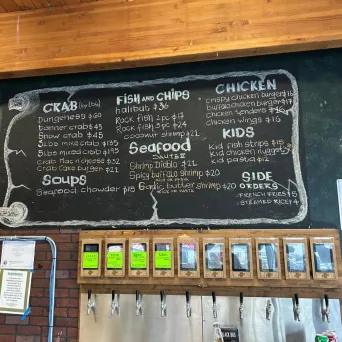 CRAB (by lb)
Dungeness $60
tanner crab $45
Snow crab $45
3 lbs mixe crab $135
5 lbs mixed crab $195
Crab Mac n cheese $32
Crab Cake burger $21
SOUPS
Seafood chowder $15
FISH AND CHIPS
halibut $36
Rock fish 2pc $17
Rock fish 3pc $24
coconut shrimp $21
Seafood
SAUTEE
Shrimp Diablo $21
Spicy buffalo shrimp $20
Garlic butter shrimp $20
CHICKEN
crispy chicken burger $16
buffalo chicken burger $17
chicken tenders $16
chicken wings $16
KIDS
Kid fish strips $15
Kid chicken nuggets
Kid pasta $12
SIDE
ORDERS
FRENCH FRIES $5
STEAMED RICE $4